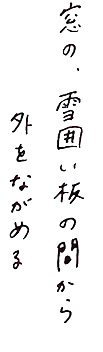 窓の、雪囲い板の間から
外をながめる